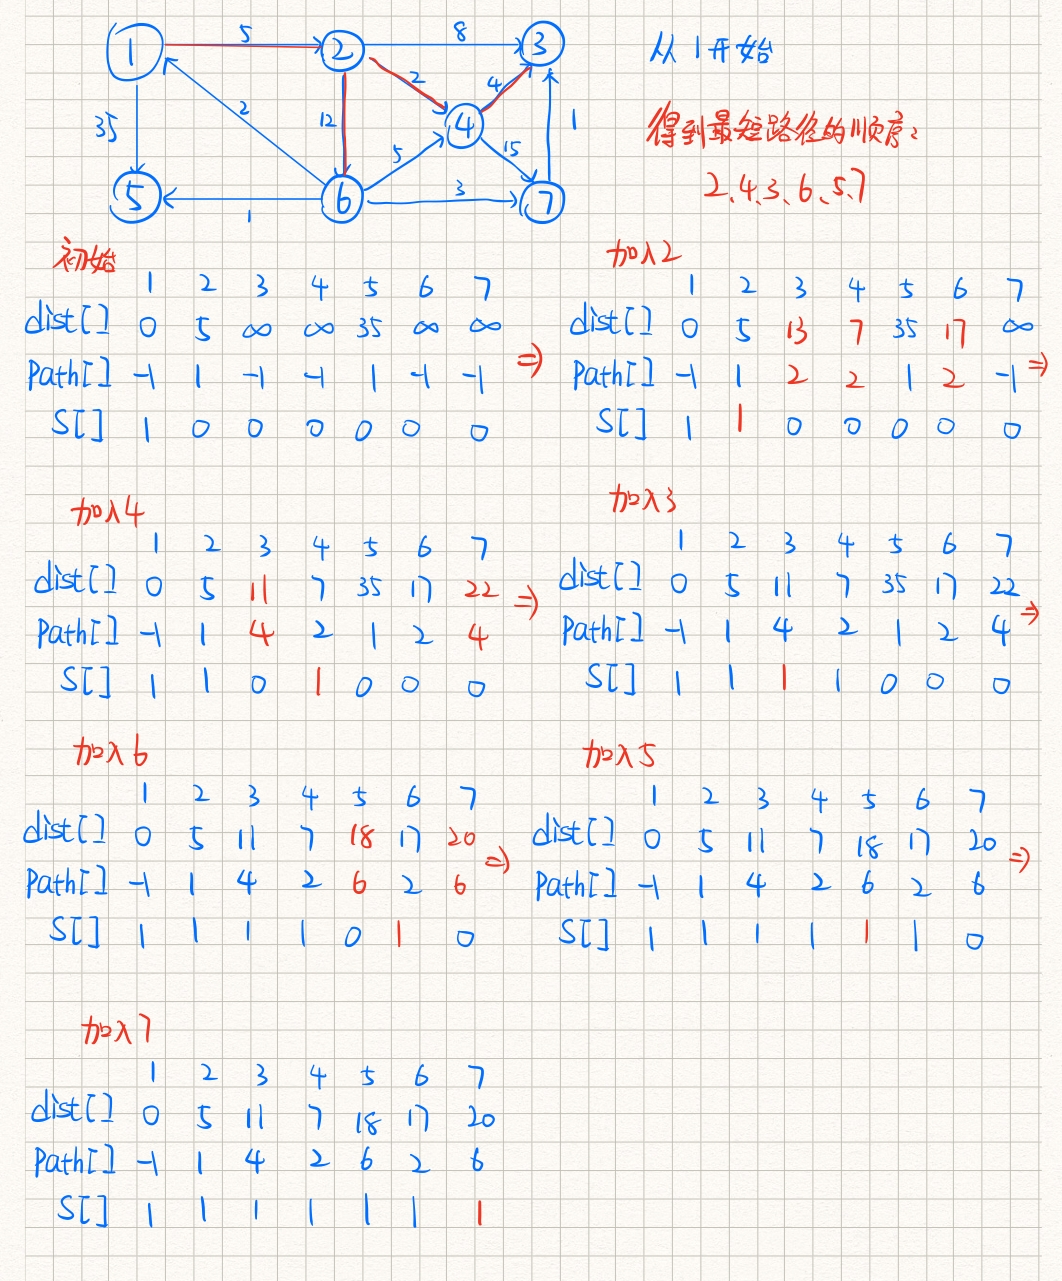 1 5 2 8 3
从1开始
35 2 12 2 4 4 1
得到最短路径的顺序：
5 15
5 1 6 3 7
2、4、3、6、5、7
初始
1 2 3 4 5 6 7
dist[] 0 5 ∞ ∞ 35 ∞ ∞
Path[] -1 1 -1 -1 1 -1 -1
S[] 1 0 0 0 0 0 0
⇒
加入2
1 2 3 4 5 6 7
dist[] 0 5 13 7 35 17 ∞
Path[] -1 1 2 2 1 2 -1
S[] 1 1 0 0 0 0 0
⇒
加入4
1 2 3 4 5 6 7
dist[] 0 5 11 7 35 17 22
Path[] -1 1 4 2 1 2 4
S[] 1 1 0 1 0 0 0
⇒
加入3
1 2 3 4 5 6 7
dist[] 0 5 11 7 35 17 22
Path[] -1 1 4 2 1 2 4
S[] 1 1 1 1 0 0 0
⇒
加入6
1 2 3 4 5 6 7
dist[] 0 5 11 7 18 17 20
Path[] -1 1 4 2 6 2 6
S[] 1 1 1 1 0 1 0
⇒
加入5
1 2 3 4 5 6 7
dist[] 0 5 11 7 18 17 20
Path[] -1 1 4 2 6 2 6
S[] 1 1 1 1 1 1 0
⇒
加入7
1 2 3 4 5 6 7
dist[] 0 5 11 7 18 17 20
Path[] -1 1 4 2 6 2 6
S[] 1 1 1 1 1 1 1